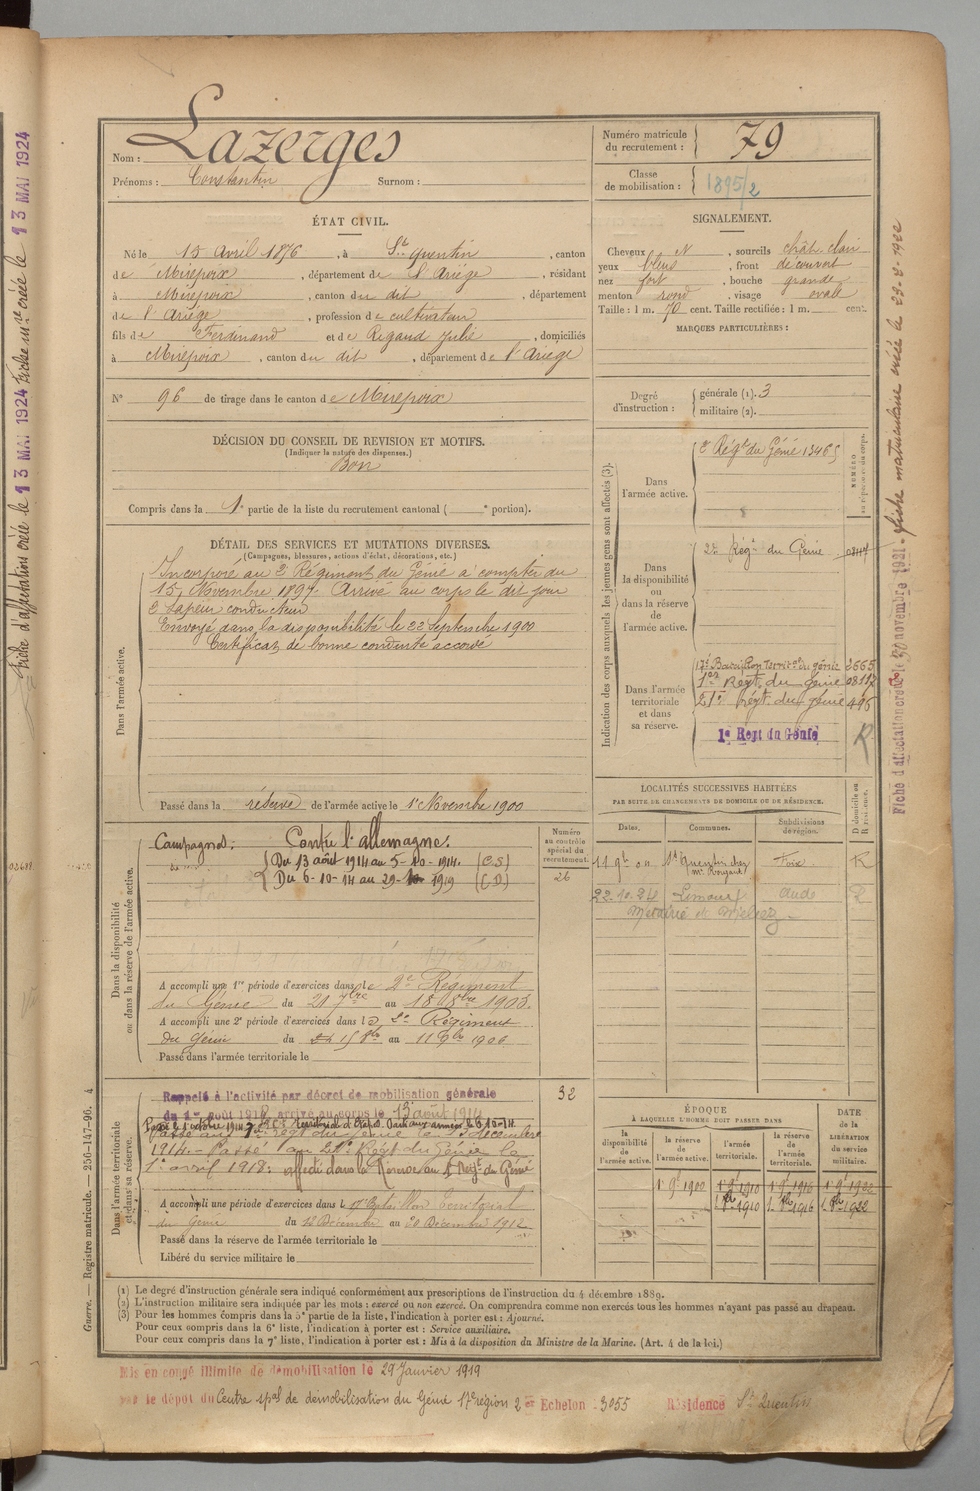 Nom : Lazerges
Prénoms : Constantin Surnom :
Numéro matricule
du recrutement : 79
Classe
de mobilisation : 1895/2
ÉTAT CIVIL.
Né le 15 Avril 1876, à St Quentin, canton
de Mirepoix, département de l'Ariège, résidant
à Mirepoix, canton du dit, département
de l'Ariège, profession de cultivateur
fils de Ferdinand et de Regaud Julie, domiciliés
à Mirepoix, canton du dit, département de l'Ariège
N° 96 de tirage dans le canton de Mirepoix
DÉCISION DU CONSEIL DE REVISION ET MOTIFS.
(Indiquer la nature des dispenses.)
Bon
Compris dans la 1e partie de la liste du recrutement cantonal ( e portion).
SIGNALEMENT.
Cheveux N, sourcils chât. clair
yeux bleus, front découvert
nez fort, bouche grande
menton rond, visage ovale
Taille : 1 m. 70 cent. Taille rectifiée : 1 m. cent.
MARQUES PARTICULIÈRES :
Degré
d'instruction :
générale (1). 3
militaire (2).
DÉTAIL DES SERVICES ET MUTATIONS DIVERSES.
(Campagnes, blessures, actions d'éclat, décorations, etc.)
Dans l'armée active.
Incorporé au 2e Régiment du Génie à compter du
15 Novembre 1897. Arrivé au corps le dit jour
2e sapeur conducteur
Envoyé dans la disponibilité le 22 Septembre 1900
Certificat de bonne conduite accordé
Passé dans la réserve de l'armée active le 1er Novembre 1900
Indication des corps auxquels les jeunes gens sont affectés (3).
NUMÉRO
au répertoire du corps.
Dans
l'armée active.
2e Régt du Génie
Dans
la disponibilité
ou
dans la réserve
de
l'armée active.
2e Régt du Génie
Dans l'armée
territoriale
et dans
sa réserve.
17e Bataillon Territal du génie 2665
1er Régt du génie
21e Régt du génie 496
1e Regt du Génie
R
Dans la disponibilité
ou dans la réserve de l'armée active.
Campagnes : Contre l'allemagne :
Du 13 août 1914 au 5-10-1914. (C.S)
Du 6-10-14 au 29-1-1919 (C.D)
Numéro
au contrôle
spécial du
recrutement.
26
A accompli une 1re période d'exercices dans le 2e Régiment
du Génie du 21 7bre au 18 8bre 1903.
A accompli une 2e période d'exercices dans le 2e Régiment
du Génie du 15 8bre au 11 9bre 1906
Passé dans l'armée territoriale le
LOCALITÉS SUCCESSIVES HABITÉES
PAR SUITE DE CHANGEMENTS DE DOMICILE OU DE RÉSIDENCE.
Dates. Communes. Subdivisions
de région.
D domicile ou
R résidence.
St Quentin chez Foix. R
22.10.24 Limoux Aude R
Dans l'armée territoriale
et dans sa réserve.
Rappelé à l'activité par décret de mobilisation générale
du 1er août 1914, arrivé au corps le 13 août 1914
32
1914. Passé au 21e Régt du Génie le
1er avril 1918. affecté dans la Réserve au 1er Régt du Génie
A accompli une période d'exercices dans le 17e Bataillon Territorial
du Génie du 12 Décembre au 20 Décembre 1912
Passé dans la réserve de l'armée territoriale le
Libéré du service militaire le
ÉPOQUE
À LAQUELLE L'HOMME DOIT PASSER DANS
DATE
DE LA
LIBÉRATION
du service
militaire.
la
disponibilité
de
l'armée active.
la réserve
de
l'armée active.
l'armée
territoriale.
la réserve
de l'armée
territoriale.
1er 9bre 1900 1er 9bre 1910 1er 9bre 1916 1er 9bre 1922
1er 8bre 1910 1er 8bre 1916 1er 8bre 1922
(1) Le degré d'instruction générale sera indiqué conformément aux prescriptions de l'instruction du 4 décembre 1889.
(2) L'instruction militaire sera indiquée par les mots : exercé ou non exercé. On comprendra comme non exercés tous les hommes n'ayant pas passé au drapeau.
(3) Pour les hommes compris dans la 5e partie de la liste, l'indication à porter est : Ajourné.
Pour ceux compris dans la 6e liste, l'indication à porter est : Service auxiliaire.
Pour ceux compris dans la 7e liste, l'indication à porter est : Mis à la disposition du Ministre de la Marine. (Art. 4 de la loi.)
Mis en congé illimité de démobilisation le 29 Janvier 1919
par le dépôt du Centre spal de démobilisation du Génie 17e région 2e Echelon : 3055 Résidence St Quentin
Guerre. — Registre matricule. — 256-147-96. 4
Fiche d'affectation créée le 13 MAI 1924 Fiche mre créée le 13 MAI 1924
Fiche d'affectation créée le 30 novembre 1921 - fiche matriculaire créée le